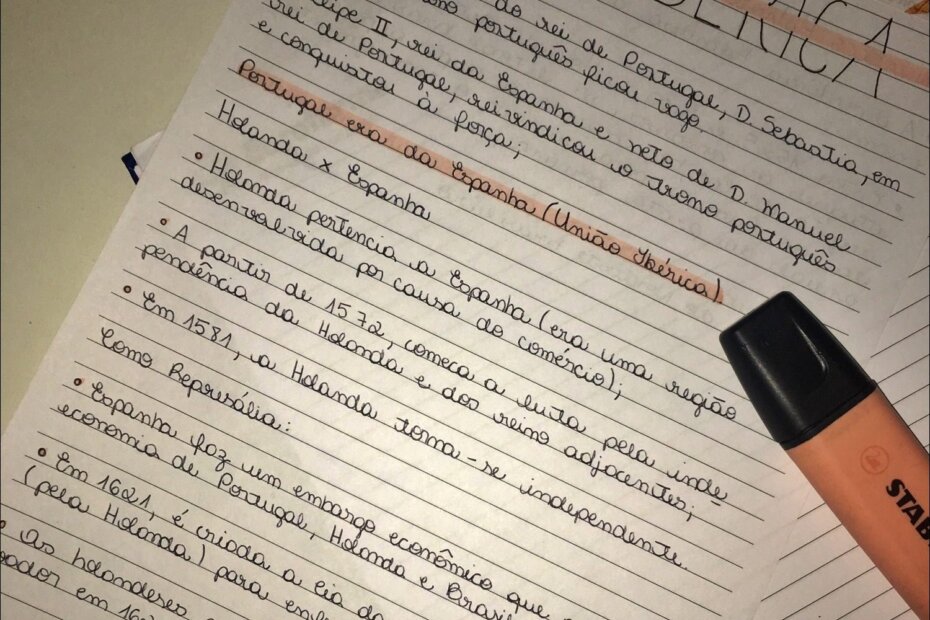 ÉRICA
do rei de Portugal, D. Sebastia, em
português ficou vago.
II, rei da Espanha e neto de D. Manuel
rei de Portugal, reivindicou o trono português
e conquistou à força;
Portugal era da Espanha (União Ibérica)
Holanda x Espanha
• Holanda pertencia a Espanha (era uma região
desenvolvida por causa do comércio);
• A partir de 1572, começa a luta pela inde-
pendência da Holanda e dos reino adjacentes;
• Em 1581, a Holanda torna-se independente.
Como Represália:
• Espanha faz um embargo econômico que
economia de Portugal, Holanda e Brasil
• Em 1621, é criada a cia da
(pela Holanda) para
• As holandeses
em
STAB